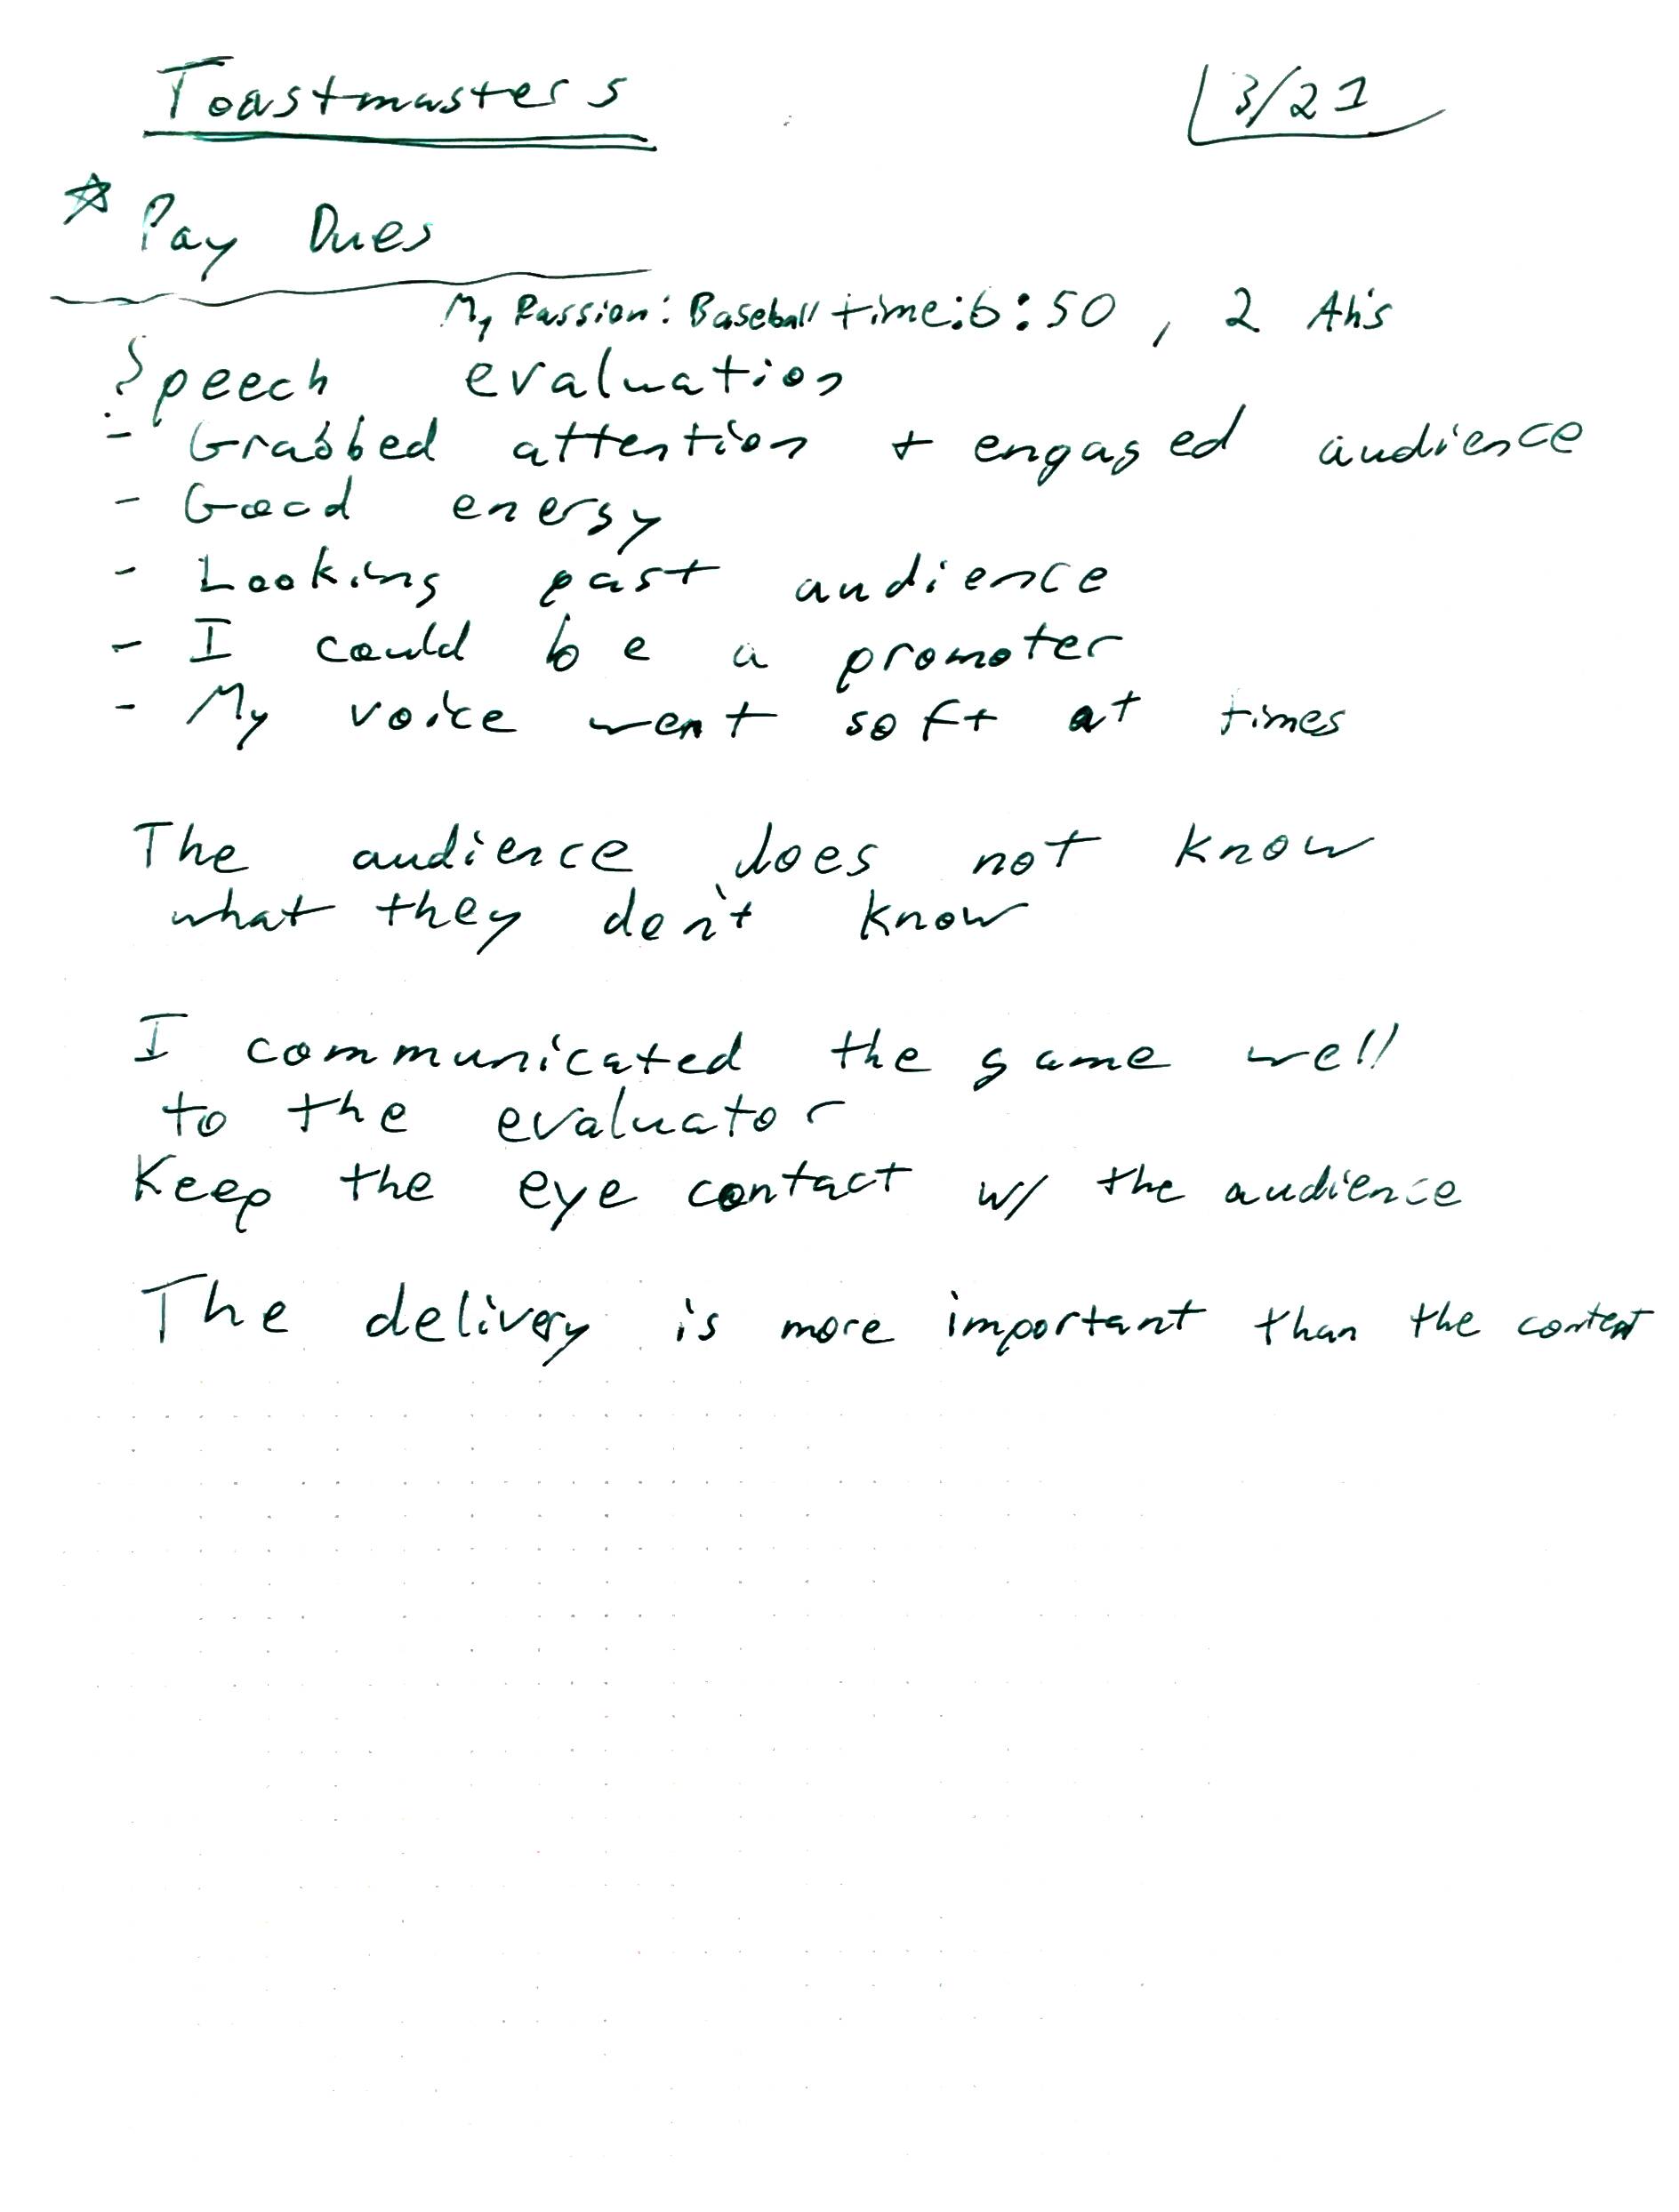 Toastmasters 3/21
☆ Pay Dues
My Passion: Baseball time: 6:50, 2 Ah's
Speech evaluation
- Grabbed attention + engaged audience
- Good energy
- Looking past audience
- I could be a promoter
- My voice went soft at times
The audience does not know
what they don't know
I communicated the game well
to the evaluator
Keep the eye contact w/ the audience
The delivery is more important than the content